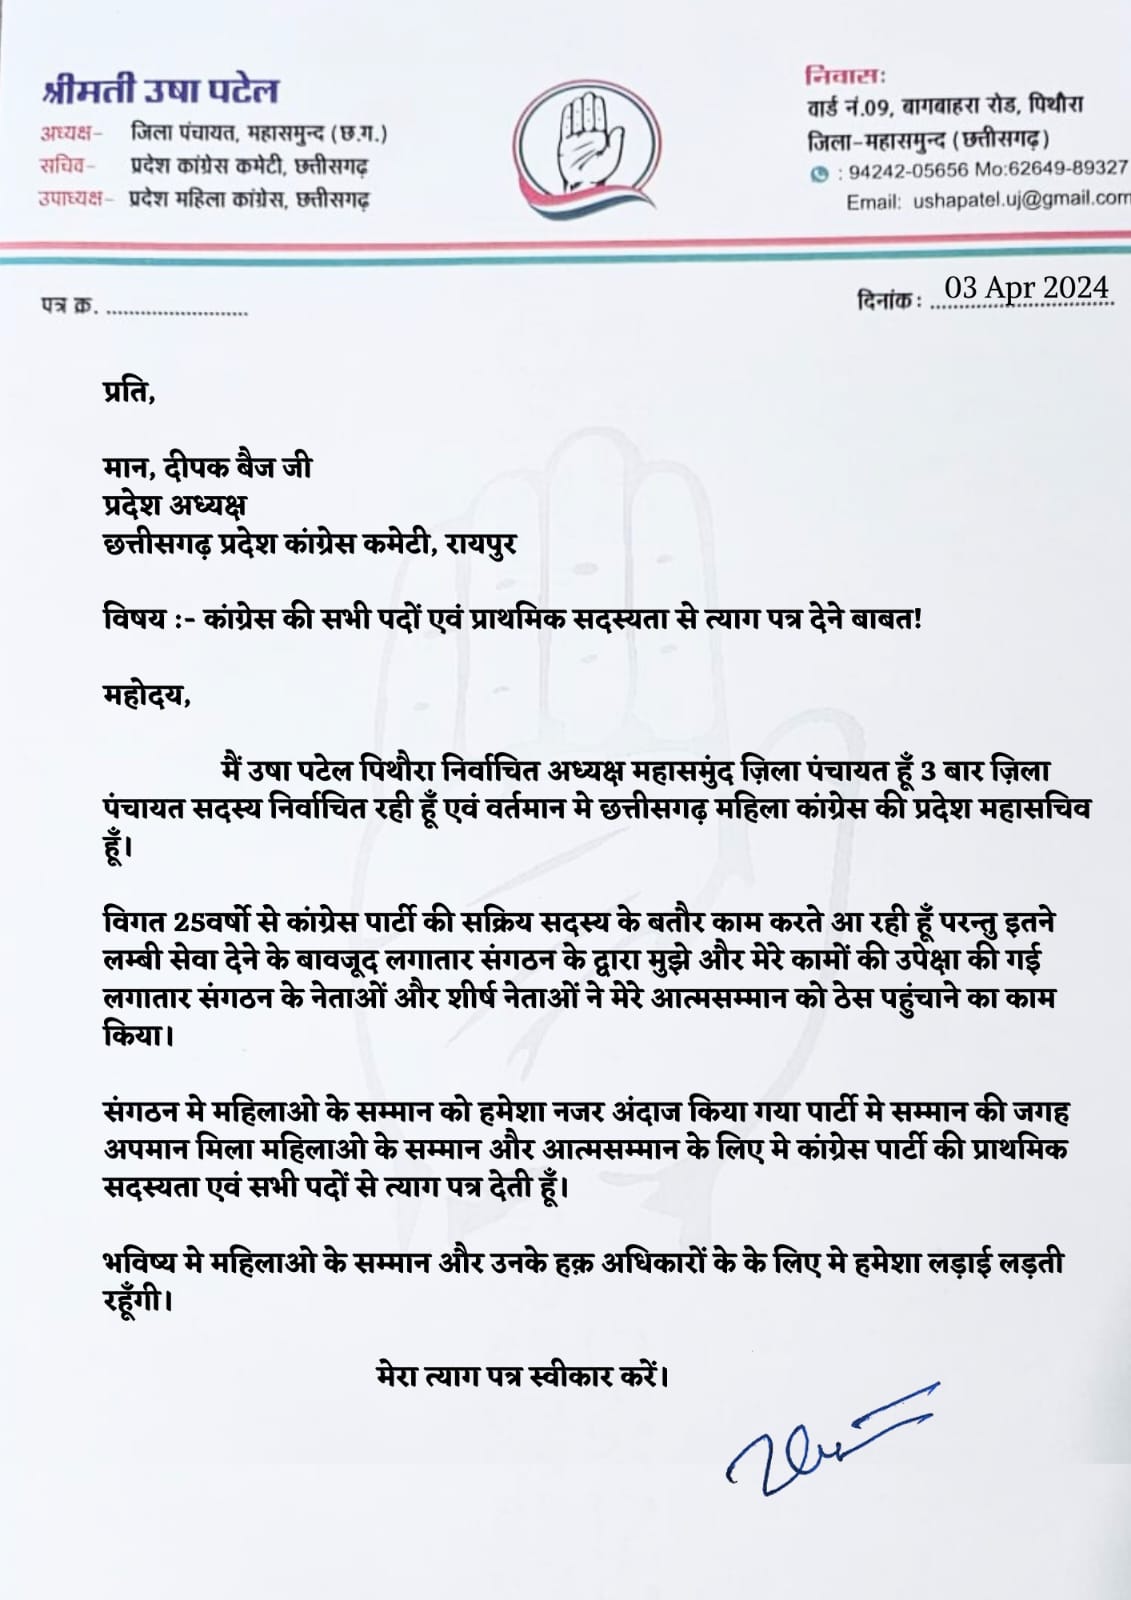 श्रीमती उषा पटेल
अध्यक्ष- जिला पंचायत, महासमुन्द (छ.ग.)
सचिव- प्रदेश कांग्रेस कमेटी, छत्तीसगढ़
उपाध्यक्ष- प्रदेश महिला कांग्रेस, छत्तीसगढ़
निवास:
वार्ड नं.09, बागबाहरा रोड, पिथौरा
जिला-महासमुन्द (छत्तीसगढ़)
: 94242-05656 Mo:62649-89327
Email: ushapatel.uj@gmail.com
पत्र क्र. ..........................
दिनांक: 03 Apr 2024
प्रति,
मान, दीपक बैज जी
प्रदेश अध्यक्ष
छत्तीसगढ़ प्रदेश कांग्रेस कमेटी, रायपुर
विषय :- कांग्रेस की सभी पदों एवं प्राथमिक सदस्यता से त्याग पत्र देने बाबत!
महोदय,
मैं उषा पटेल पिथौरा निर्वाचित अध्यक्ष महासमुंद ज़िला पंचायत हूँ 3 बार ज़िला
पंचायत सदस्य निर्वाचित रही हूँ एवं वर्तमान मे छत्तीसगढ़ महिला कांग्रेस की प्रदेश महासचिव
हूँ।
विगत 25वर्षो से कांग्रेस पार्टी की सक्रिय सदस्य के बतौर काम करते आ रही हूँ परन्तु इतने
लम्बी सेवा देने के बावजूद लगातार संगठन के द्वारा मुझे और मेरे कामों की उपेक्षा की गई
लगातार संगठन के नेताओं और शीर्ष नेताओं ने मेरे आत्मसम्मान को ठेस पहुंचाने का काम
किया।
संगठन मे महिलाओ के सम्मान को हमेशा नजर अंदाज किया गया पार्टी मे सम्मान की जगह
अपमान मिला महिलाओ के सम्मान और आत्मसम्मान के लिए मे कांग्रेस पार्टी की प्राथमिक
सदस्यता एवं सभी पदों से त्याग पत्र देती हूँ।
भविष्य मे महिलाओ के सम्मान और उनके हक़ अधिकारों के के लिए मे हमेशा लड़ाई लड़ती
रहूँगी।
मेरा त्याग पत्र स्वीकार करें।